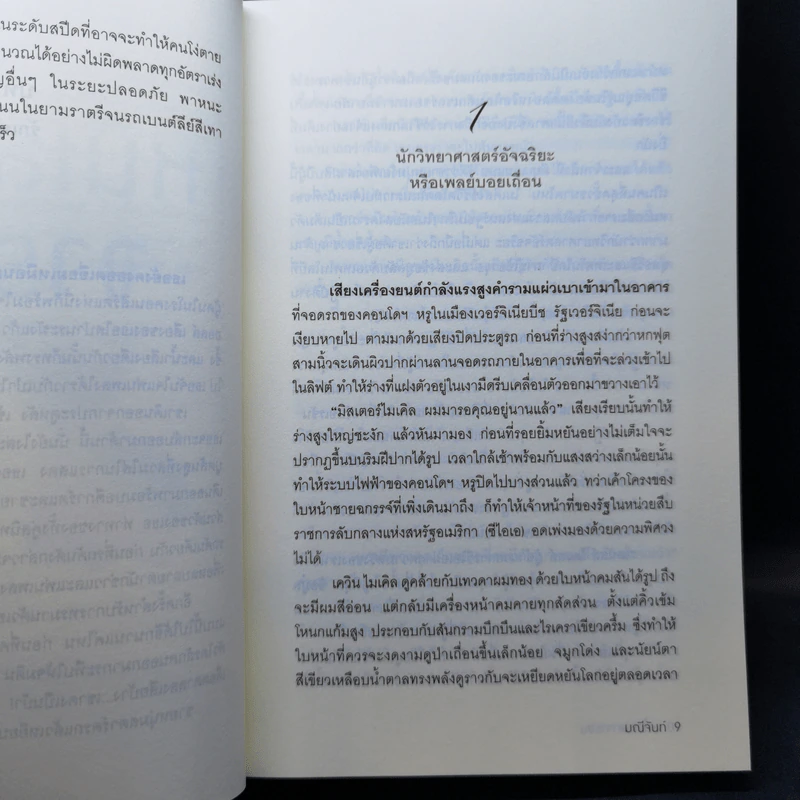 นระดับสปีดที่อาจจะทำให้คนโง่ตาย
นวณได้อย่างไม่ผิดพลาดทุกอัตราเร่ง
อื่นๆ ในระยะปลอดภัย พาหนะ
นนในยามราตรีจนรถเบนต์ลีย์สีเทา
ร็ว
1
นักวิทยาศาสตร์อัจฉริยะ
หรือเพลย์บอยเถื่อน
เสียงเครื่องยนต์กำลังแรงสูงคำรามแผ่วเบาเข้ามาในอาคาร
ที่จอดรถของคอนโดฯ หรูในเมืองเวอร์จิเนียบีช รัฐเวอร์จิเนีย ก่อนจะ
เงียบหายไป ตามมาด้วยเสียงปิดประตูรถ ก่อนที่ร่างสูงสง่ากว่าหกฟุต
สามนิ้วจะเดินผิวปากผ่านลานจอดรถภายในอาคารเพื่อที่จะล่วงเข้าไป
ในลิฟต์ ทำให้ร่างที่แฝงตัวอยู่ในเงามืดรีบเคลื่อนตัวออกมาขวางเอาไว้
“มิสเตอร์ไมเคิล ผมมารอคุณอยู่นานแล้ว” เสียงเรียบนั้นทำให้
ร่างสูงใหญ่ชะงัก แล้วหันมามอง ก่อนที่รอยยิ้มหยันอย่างไม่เต็มใจจะ
ปรากฏขึ้นบนริมฝีปากได้รูป เวลาใกล้เช้าพร้อมกับแสงสว่างเล็กน้อยนั้น
ทำให้ระบบไฟฟ้าของคอนโดฯ หรูปิดไปบางส่วนแล้ว ทว่าเค้าโครงของ
ใบหน้าชายฉกรรจ์ที่เพิ่งเดินมาถึง ก็ทำให้เจ้าหน้าที่ของรัฐในหน่วยสืบ
ราชการลับกลางแห่งสหรัฐอเมริกา (ซีไอเอ) อดเพ่งมองด้วยความพิศวง
ไม่ได้
เควิน ไมเคิล ดูคล้ายกับเทวดาผมทอง ด้วยใบหน้าคมสันได้รูป ถึง
จะมีผมสีอ่อน แต่กลับมีเครื่องหน้าคมคายทุกสัดส่วน ตั้งแต่คิ้วเข้ม
โหนกแก้มสูง ประกอบกับสันกรามบึกบึนและไรเคราเขียวครึ้ม ซึ่งทำให้
ใบหน้าที่ควรจะงดงามดูป่าเถื่อนขึ้นเล็กน้อย จมูกโด่ง และนัยน์ตา
สีเขียวเหลือบน้ำตาลทรงพลังดูราวกับจะเหยียดหยันโลกอยู่ตลอดเวลา
มณีจันท์ 9